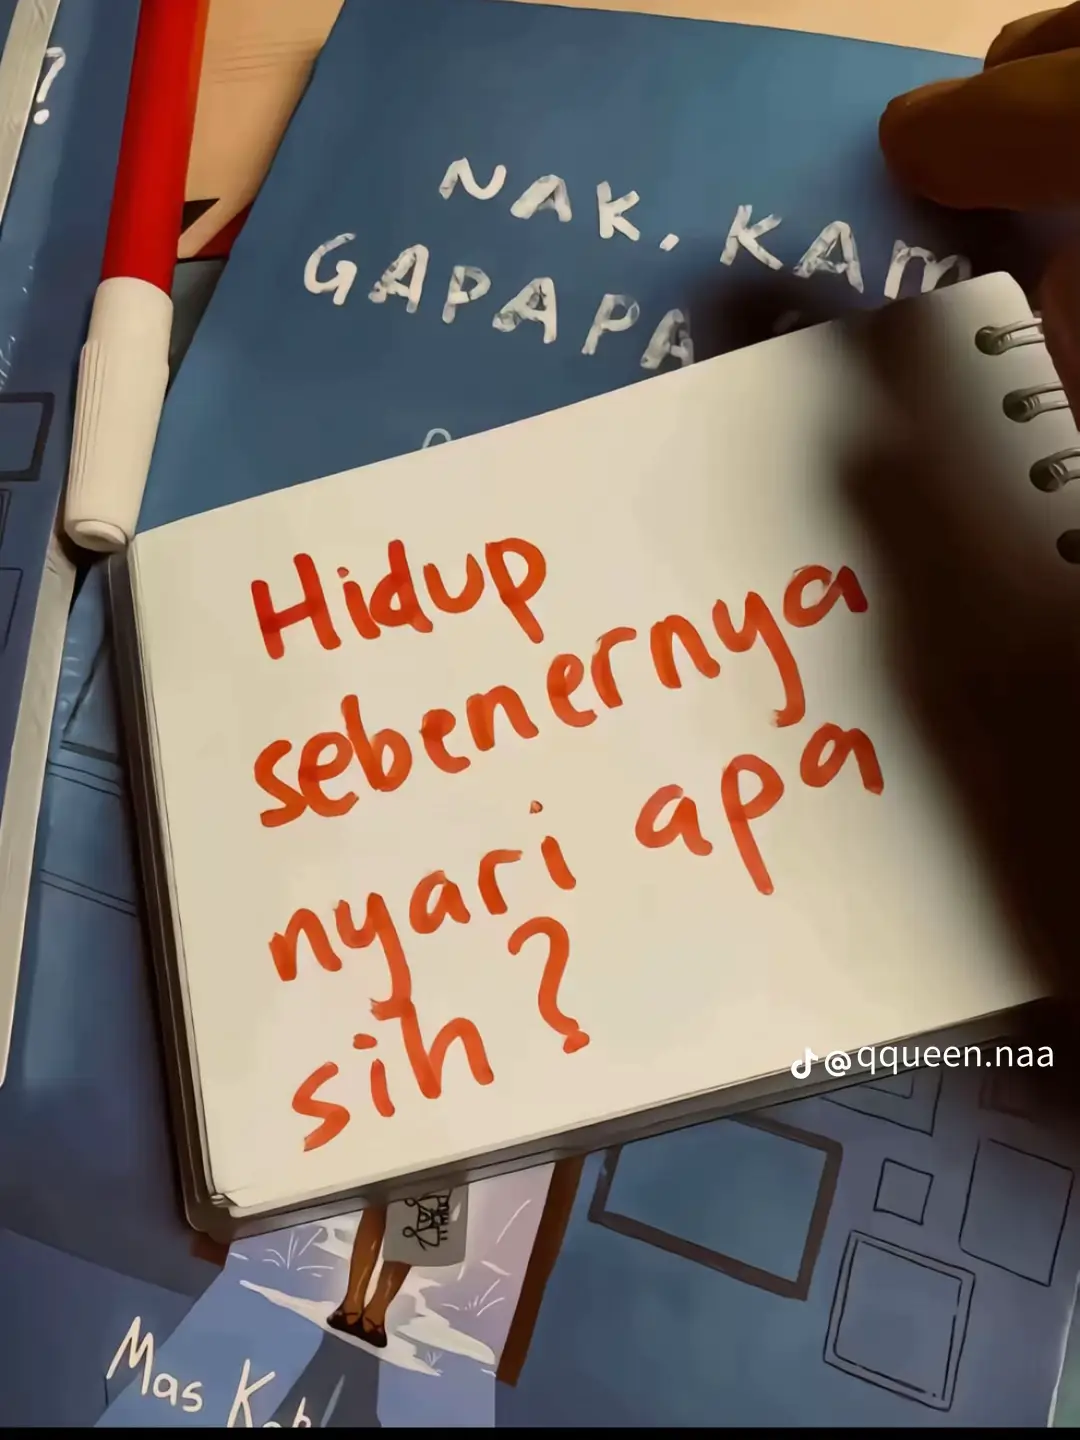 ?
NAK, KAM
GAPAPA
Hidup
sebenernya
nyari apa
sih?
@qqueen.naa
Mas